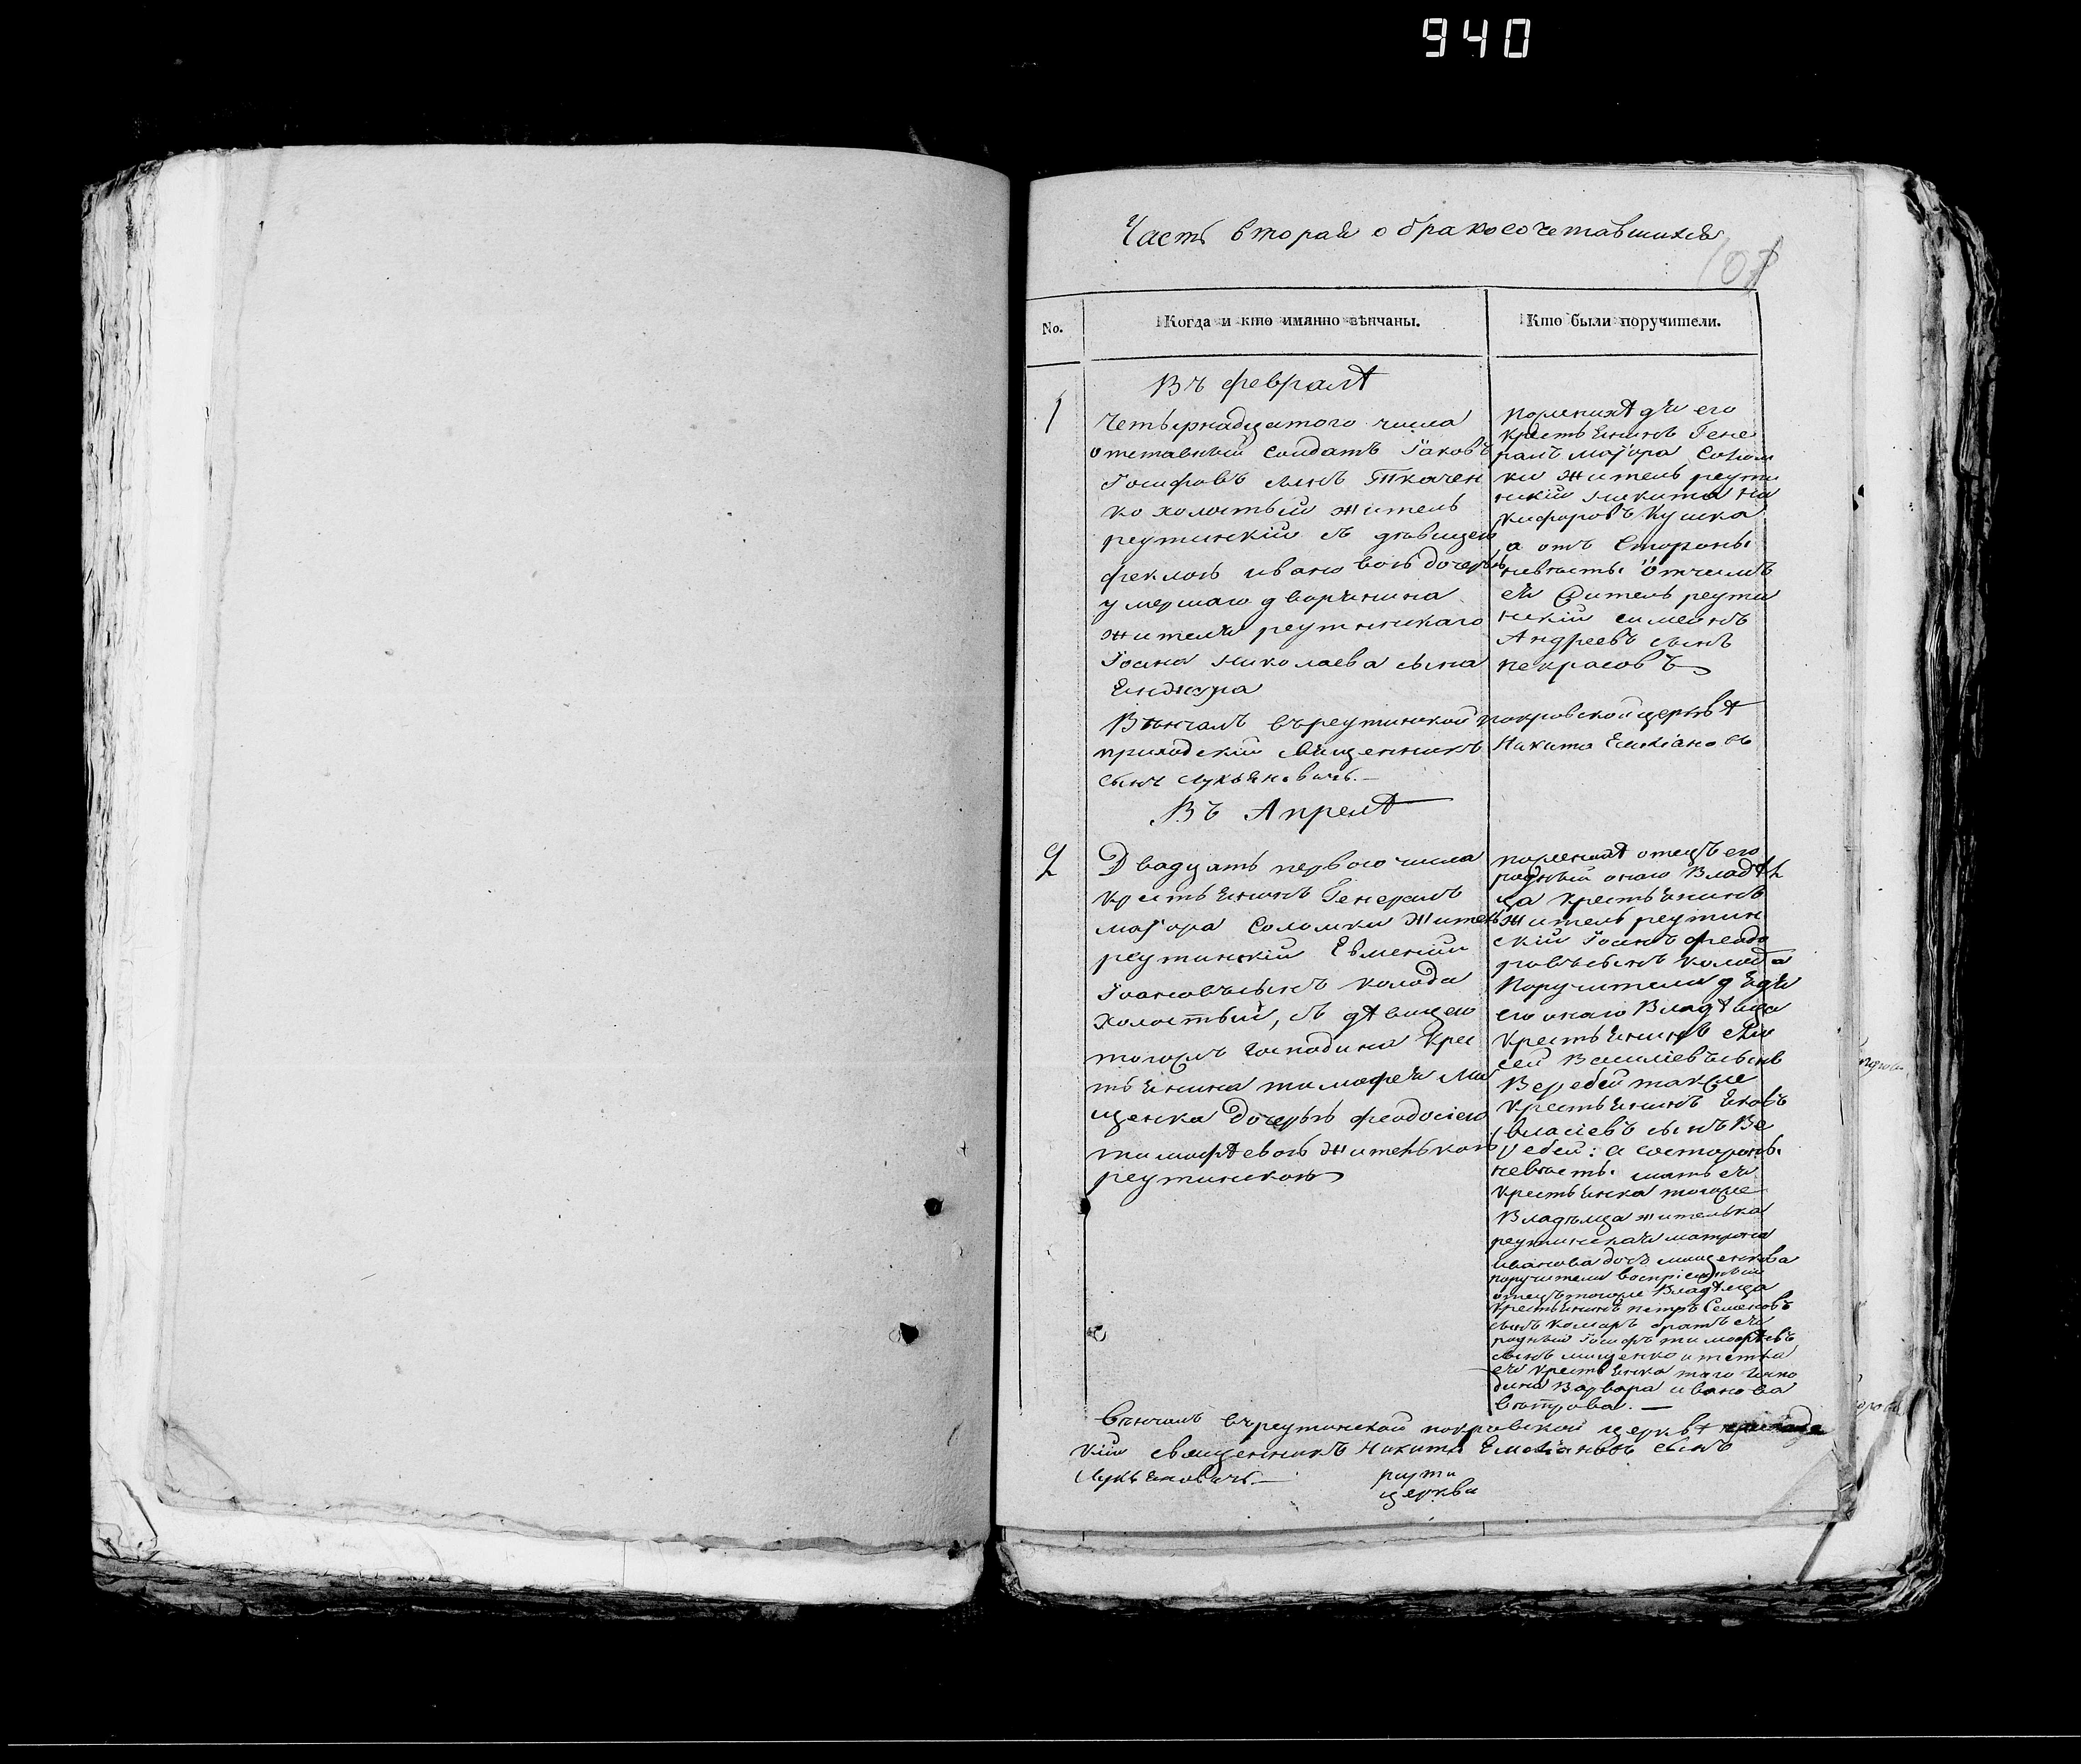 940
Часть вторая о бракосочетавшихся
107
No.
Когда и кто имянно вѣнчаны.
Кто были поручители.
Въ февралѣ
1
четырнадцатого числа
отставный солдатъ Іаковъ
Іосифовъ сынъ Ткачен
ко холостый житель
реутинскій съ дѣвицею
феклою ивановою дочерью
умершаго дворянина
жителя реутинскаго
Іоана николаева сына
поженихѣ дядя его
крестьянинъ Гене
ралъ маіора Солом
ки житель реути
нскій никита ни
кифоровъ
а отъ стороны
невѣсты отчимъ
ей житель реути
нскій симеонъ
Андреевъ сынъ
некрасовъ
Вѣнчалъ въреутинской покровской церквѣ
приходскій священникъ Никита Емеліановъ
сынъ Лукьяновичъ.—
Въ Апрелѣ
2
Двадцать первого числа
крестьянинъ Генералъ
маіора Соломки житель
реутинскій Евменій
Іоановъ сынъ колода
холостый, съ дѣвицею
тогожъ господина крес
тьянина тимофея Ми
щенка дочерью феодосіею
тимофѣевою жителькою
реутинскою
поженихѣ отецъ его
родный онаго Владѣл
ца крестьянинъ
житель реутин
скій Іоанъ феодо
ровъ сынъ колода
Поручители дядя
его онаго Владѣлца
крестьянинъ
сей Василіевъ сынъ
Веребей также
крестьянинъ Яковъ
власіевъ сынъ Ве
ребей: а состороны
невѣсты мать ея
крестьянка тогоже
Владѣлца жителька
реутинская матрона
иванова дочь мищенкова
поручители воспріемный
отецъ тогоже Владѣлца
крестьянинъ петръ Семеновъ
сынъ комаръ братъ ея
родный Іосифъ тимофѣевъ
сынъ мищенко и тетка
ея крестьянка того госпо
дина Варвара иванова
вѣтрова.—
Вѣнчалъ въреутинской покровской церквѣ приход
кій священникъ Никита Емеліановъ сынъ
Лукьяновичъ.—
реути
церкви